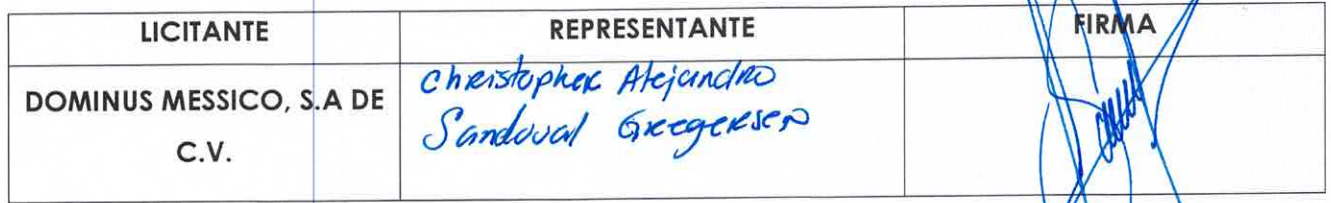 LICITANTE REPRESENTANTE FIRMA
DOMINUS MESSICO, S.A DE
C.V.
Christopher Alejandro
Sandoval Greegersen